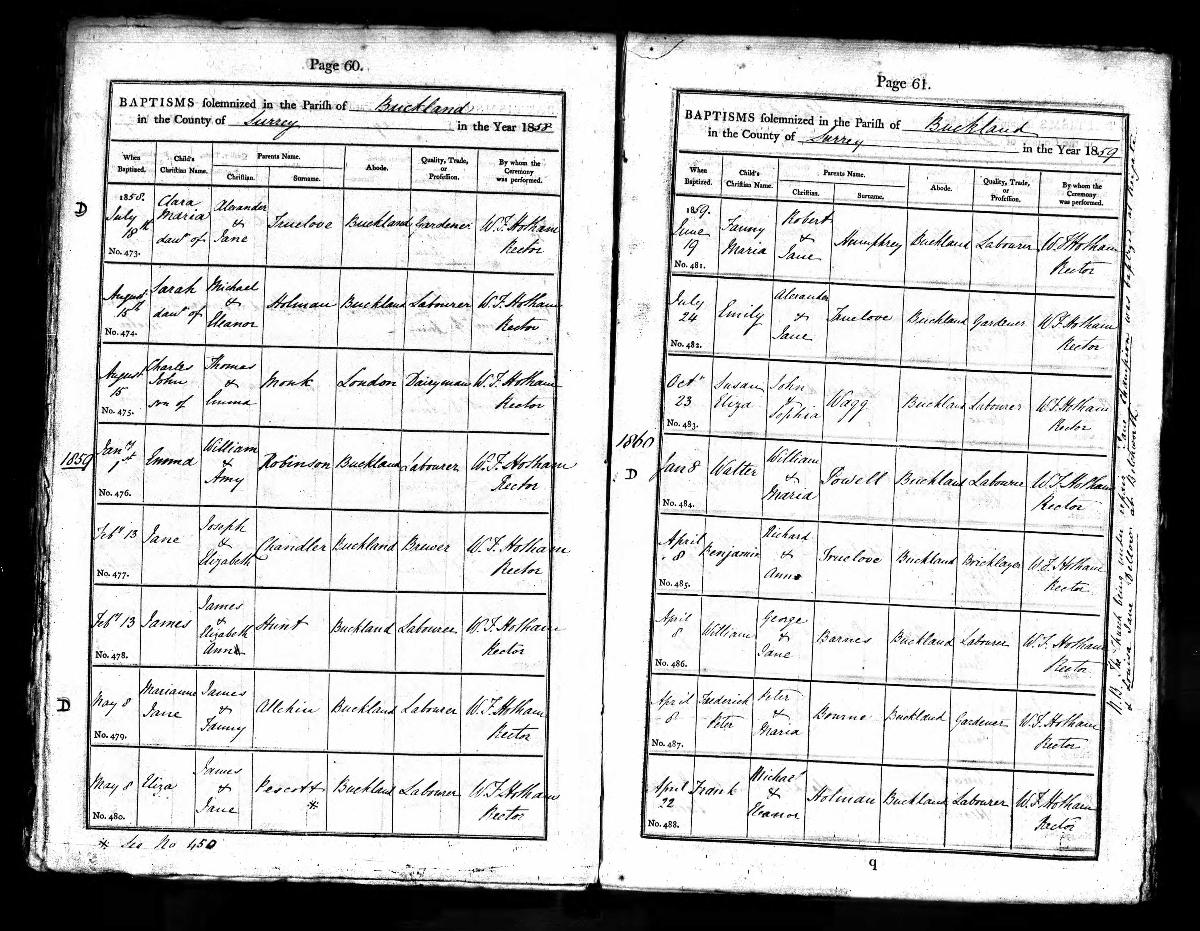 Page 60.
BAPTISMS solemnized in the Parish of Buckland
in the County of Surrey in the Year 1858
When Baptized. Child's Christian Name. Parents Name. Christian. Surname. Abode. Quality, Trade, or Profession. By whom the Ceremony was performed.
D 1858. July 18th No. 473. Clara Maria daur of Alexander & Jane Truelove Buckland Gardener W.F. Hotham Rector
August 15th No. 474. Sarah daur of Michael & Eleanor Holman Buckland Labourer W.F. Hotham Rector
August 15 No. 475. Charles John son of Thomas & Emma Monk London Dairyman W.F. Hotham Rector
1859 Jany 1st No. 476. Emma William & Amy Robinson Buckland Labourer W.F. Hotham Rector
Feby 13 No. 477. Jane Joseph & Elizabeth Chandler Buckland Brewer W.F. Hotham Rector
Feby 13 No. 478. James James & Elizabeth Ann Hunt Buckland Labourer W.F. Hotham Rector
D May 8 No. 479. Marianne Jane James & Fanny Allchin Buckland Labourer W.F. Hotham Rector
May 8 No. 480. Eliza James & Jane Pescott * Buckland Labourer W.F. Hotham Rector
* See No 450
Page 61.
BAPTISMS solemnized in the Parish of Buckland
in the County of Surrey in the Year 1859
When Baptized. Child's Christian Name. Parents Name. Christian. Surname. Abode. Quality, Trade, or Profession. By whom the Ceremony was performed.
1859. June 19 No. 481. Fanny Maria Robert & Jane Humphrey Buckland Labourer W.F. Hotham Rector
July 24 No. 482. Emily Alexander & Jane Truelove Buckland Gardener W.F. Hotham Rector
Octr 23 No. 483. Susan Eliza John & Sophia Wagg Buckland Labourer W.F. Hotham Rector
1860 D Jan 8 No. 484. Walter William & Maria Powell Buckland Labourer W.F. Hotham Rector
April 8 No. 485. Benjamin Richard & Ann Truelove Buckland Bricklayer W.F. Hotham Rector
April 8 No. 486. William George & Jane Barnes Buckland Labourer W.F. Hotham Rector
April 8 No. 487. Frederick Peter Peter & Maria Bourne Buckland Gardener W.F. Hotham Rector
April 22 No. 488. Frank Michael & Eleanor Holman Buckland Labourer W.F. Hotham Rector
N.B. The Church being under repair Jane Champion was baptized at Reigate
& Louisa Jane at Betchworth
9